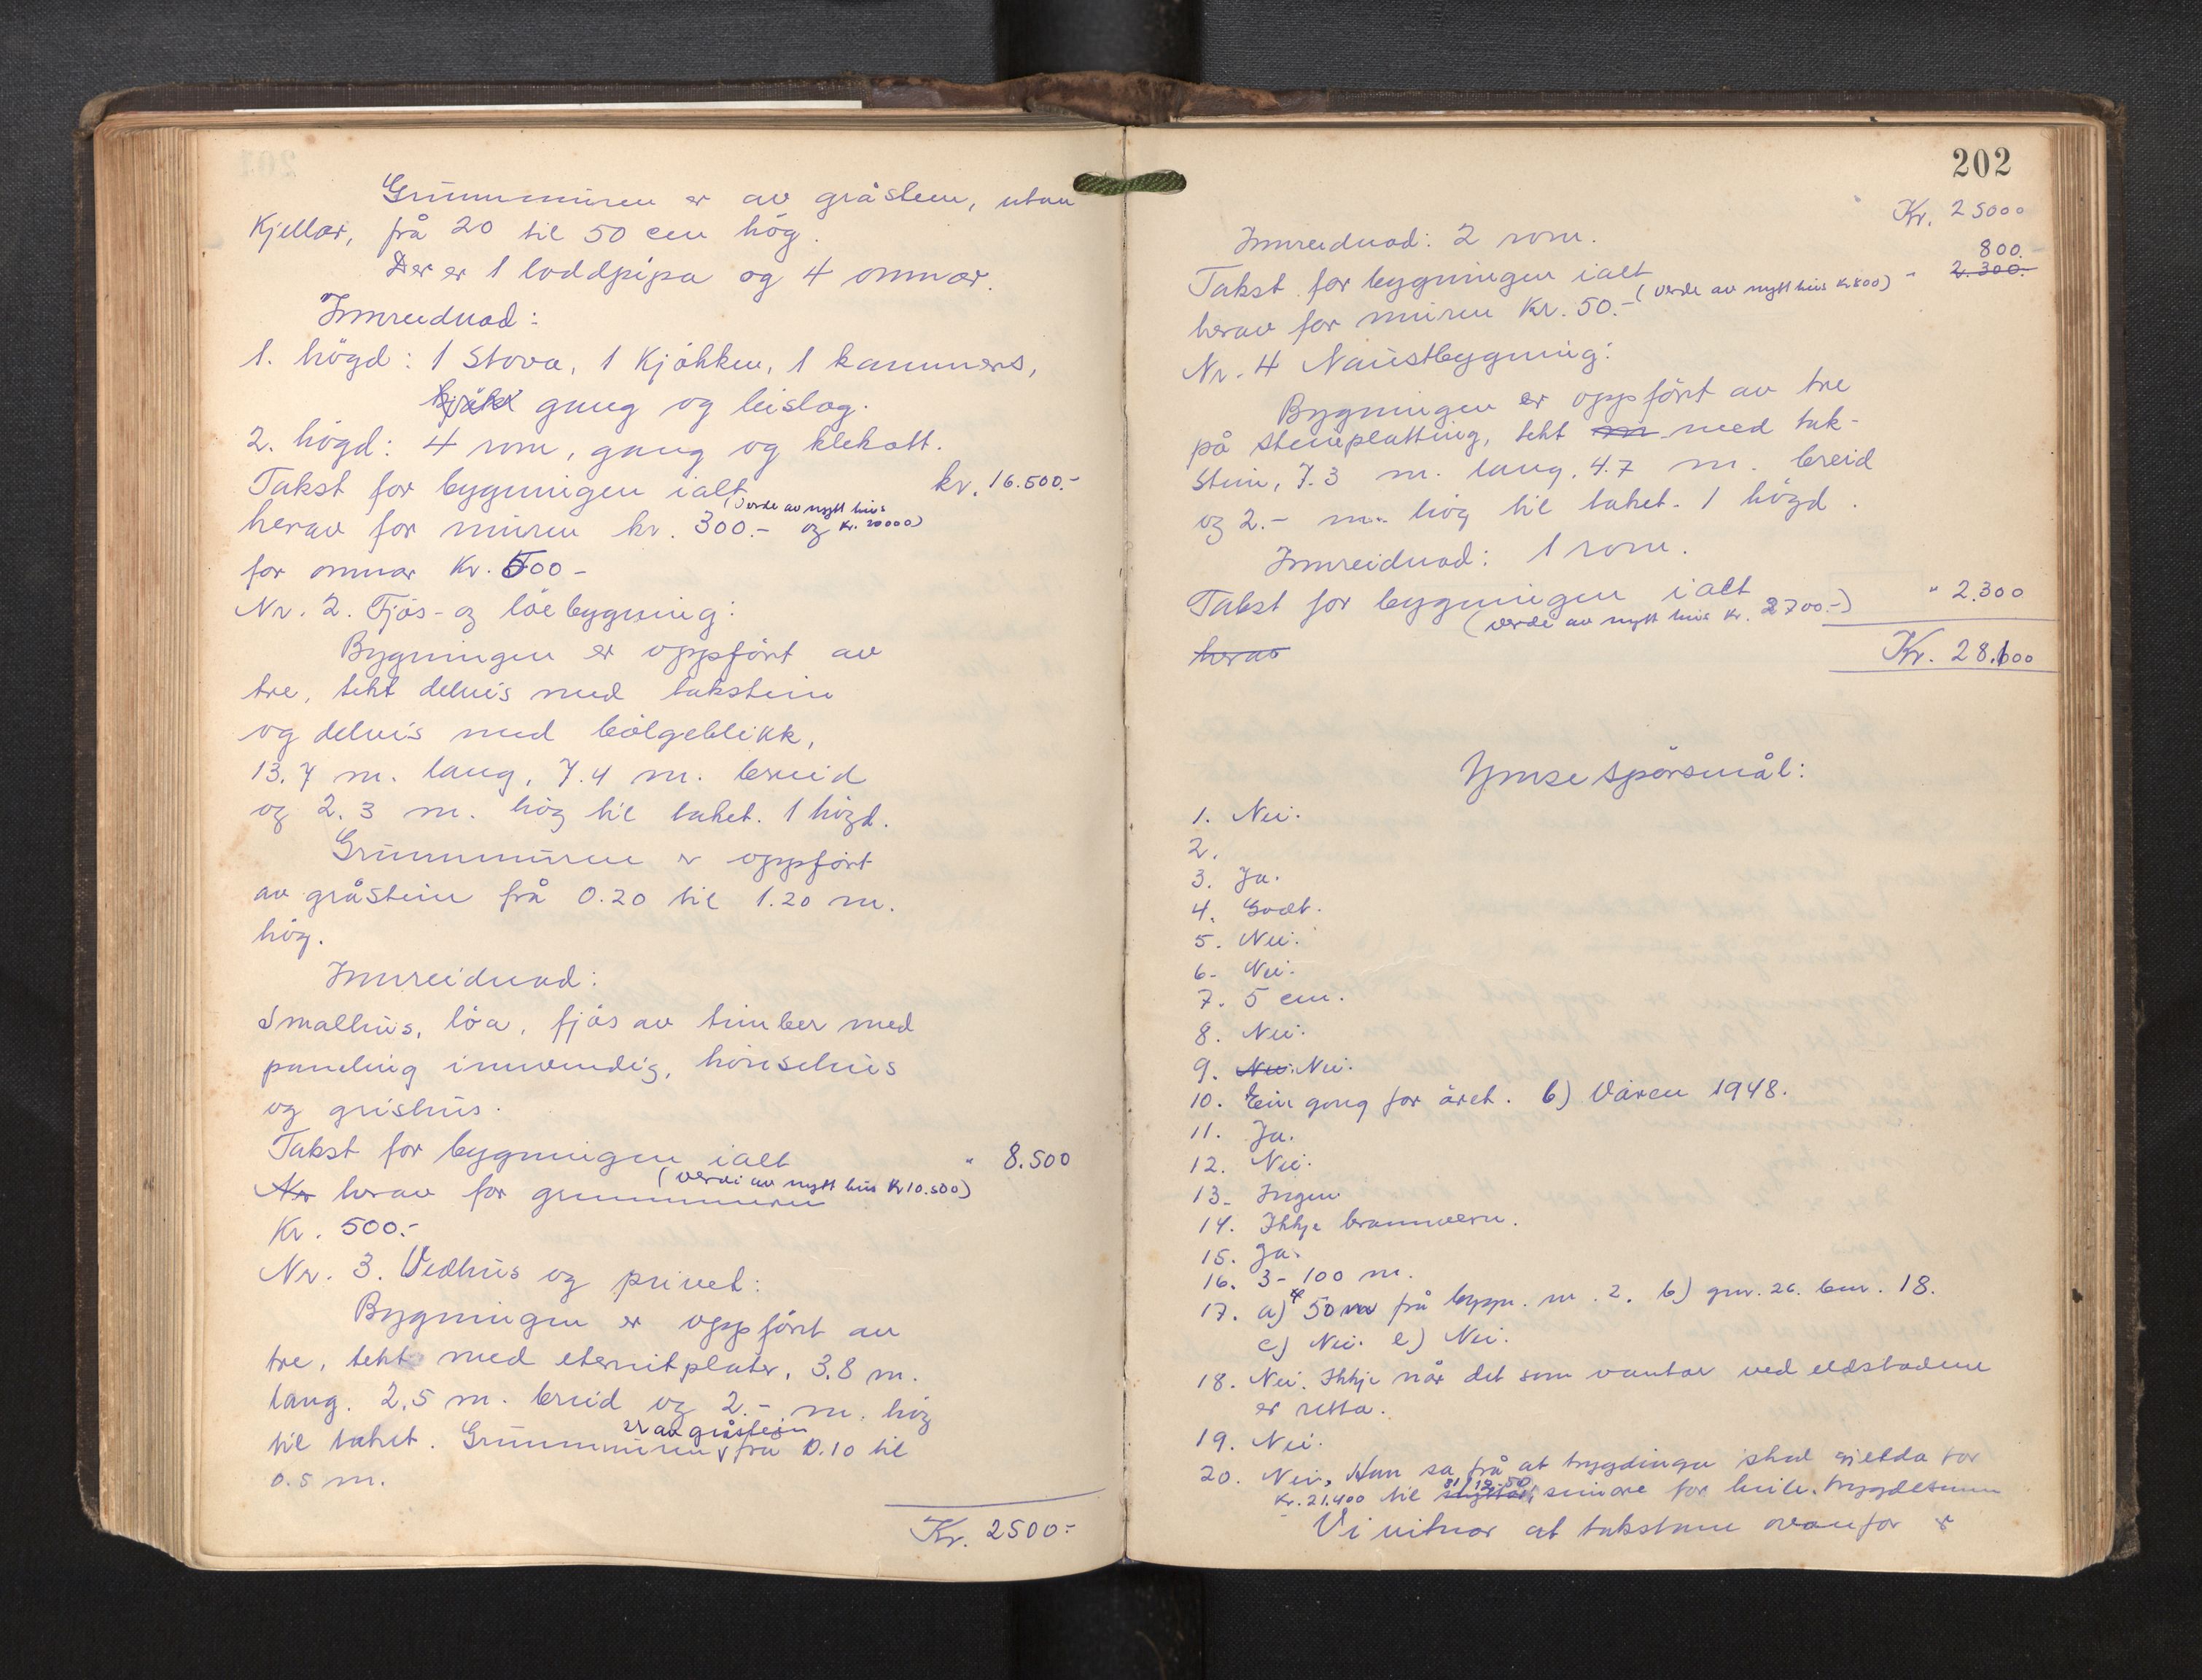 Grunnmuren er av gråstein, utan
Kjellar, frå 20 til 50 cm hög.
Der er 1 loddpipa og 4 omnar.
Innreidnad:
1. högd: 1 Stova, 1 Kjökken, 1 kammers,
gang og bislag.
2. högd: 4 rom, gang og klekott.
Takst for bygningen ialt kr. 16.500.-
(Verde av nytt hus
herav for muren kr. 300.- og kr. 20000)
for omnar Kr. 500-
Nr. 2. Fjös- og löebygning:
Bygningen er oppfört av
tre, tekt delvis med takstein
og delvis med bölgeblikk,
13.7 m. lang, 7.4 m. breid
og 2.3 m. hög til taket. 1 högd.
Grunnmuren er oppfört
av gråstein frå 0.20 til 1.20 m.
hög.
Innreidnad:
Smalhus, löa, fjös av timber med
paneling innvendig, hönsehus
og grishus.
Takst for bygningen ialt " 8.500
(verdi av nytt hus Kr 10.500)
Nr herav for grunnmuren
Kr. 500.-
Nr. 3. Vedhus og privet:
Bygningen er oppfört av
tre, tekt med eternitplater, 3.8 m.
lang. 2,5 m. breid og 2.- m. hög
er av gråstein
til taket. Grunnmuren frå 0.10 til
0.5 m.
Kr. 2500.-
202
Kr. 25000
Innreidnad: 2 rom.
800.-
Takst for bygningen ialt " 2.300.-
(verde av nytt hus Kr 800)
herav for muren Kr. 50.-
Nr. 4 Naustbygning:
Bygningen er oppfört av tre
på steinplatting, tekt m med tak-
stein, 7.3 m. lang, 4.7 m. breid
og 2.- m. hög til taket. 1 högd.
Innreidnad: 1 rom.
Takst for bygningen ialt " 2.300
(verde av nytt hus Kr. 2700.-)
herav Kr. 28.100
Ymse spörsmål:
1. Nei.
2.
3. Ja.
4. Godt.
5. Nei.
6. Nei.
7. 5 cm.
8. Nei.
9. Nei. Nei.
10. Ein gong for året. b) Våren 1948.
11. Ja.
12. Nei.
13. Ingen
14. Ikkje brannvern.
15. Ja.
16. 3-100 m.
17. a) 50 m frå bygn. nr. 2. b) gnr. 26. bnr. 18.
c) Nei. e) Nei.
18. Nei. Ikkje når det som vantar ved eldstadene
er retta.
19. Nei.
20. Nei, Han sa frå at trygdinga skal gjelda for
31/12-50
Kr. 21.400 til seinare for heile trygdesumm
Vi vitnar at takstane ovanfor er